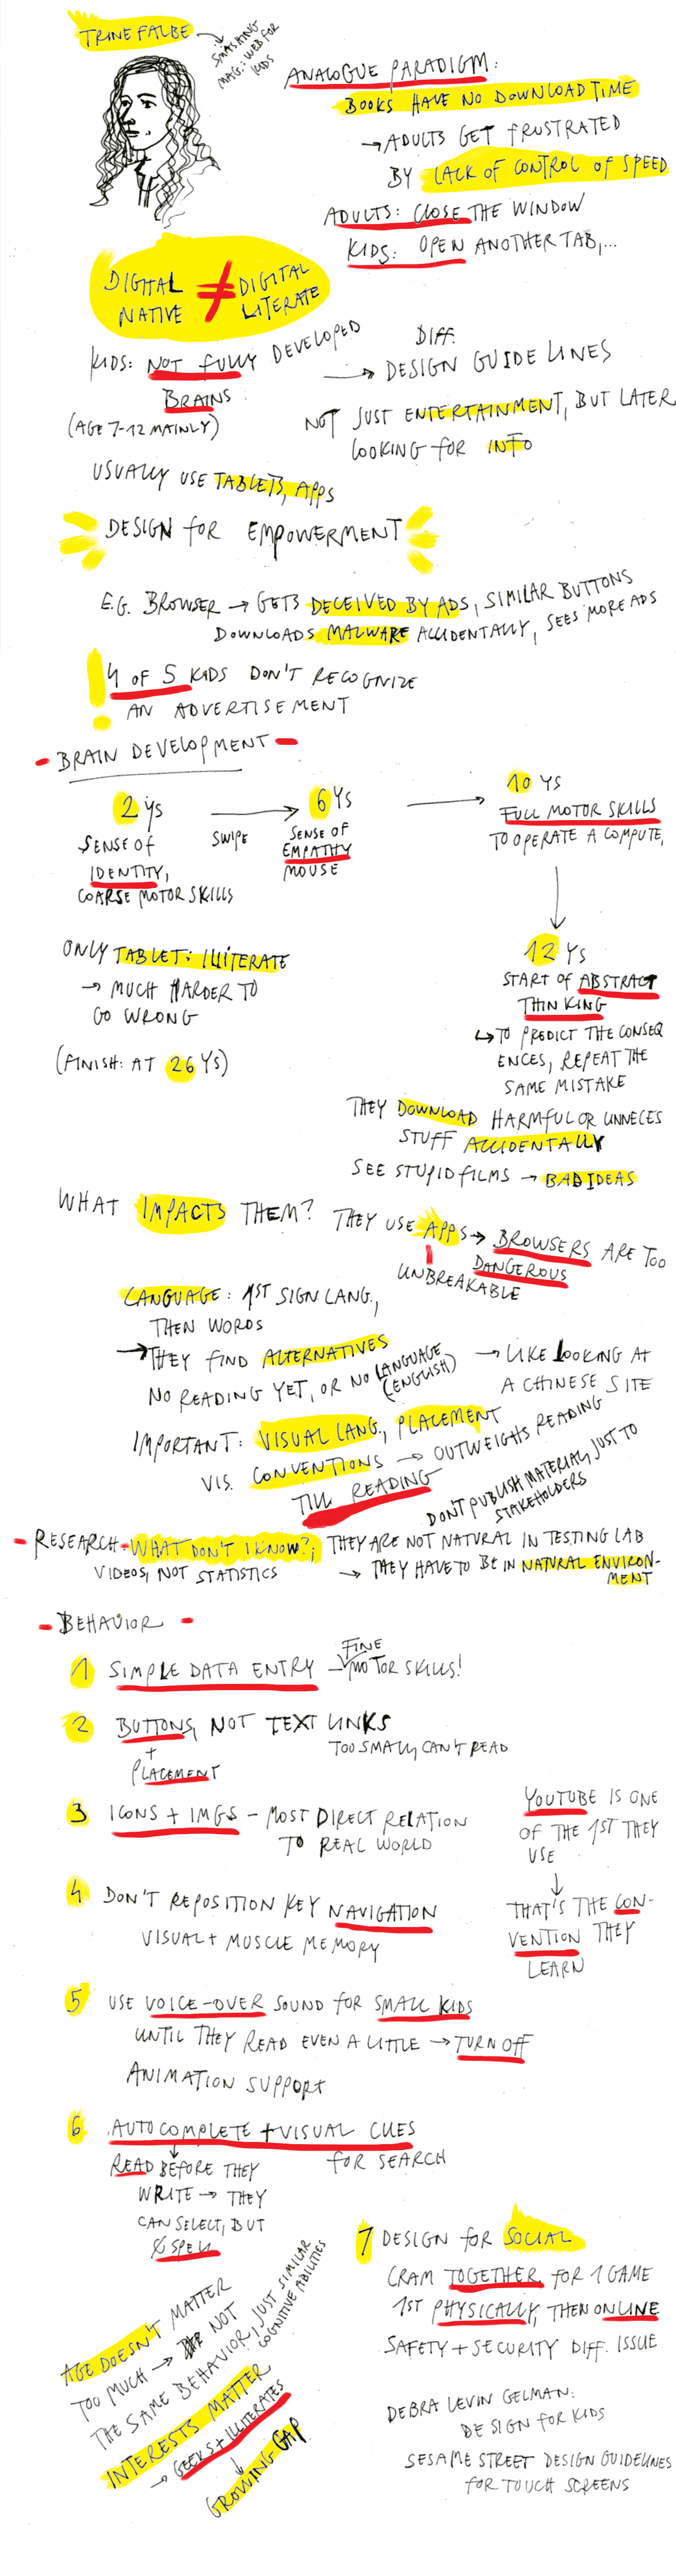 TRINE FALBE
SMASHING
MAG: WEB FOR
KIDS
ANALOGUE PARADIGM:
BOOKS HAVE NO DOWNLOAD TIME
→ ADULTS GET FRUSTRATED
BY LACK OF CONTROL OF SPEED
ADULTS: CLOSE THE WINDOW
KIDS: OPEN ANOTHER TAB,...
DIGITAL NATIVE ≠ DIGITAL LITERATE
KIDS: NOT FULLY DEVELOPED
BRAINS
(AGE 7-12 MAINLY)
DIFF.
→ DESIGN GUIDELINES
NOT JUST ENTERTAINMENT, BUT LATER
LOOKING FOR INFO
USUALLY USE TABLETS, APPS
DESIGN FOR EMPOWERMENT
E.G. BROWSER → GETS DECEIVED BY ADS, SIMILAR BUTTONS
DOWNLOADS MALWARE ACCIDENTALLY, SEES MORE ADS
! 4 OF 5 KIDS DON'T RECOGNIZE
AN ADVERTISEMENT
- BRAIN DEVELOPMENT -
2 YS
SENSE OF
IDENTITY,
COARSE MOTOR SKILLS
→
SWIPE
6 YS
SENSE OF
EMPATHY
MOUSE
→
10 YS
FULL MOTOR SKILLS
TO OPERATE A COMPUTE,
ONLY TABLET: ILLITERATE
→ MUCH HARDER TO
GO WRONG
(FINISH: AT 26 YS)
12 YS
START OF ABSTRACT
THINKING
↳ TO PREDICT THE CONSEQ
ENCES, REPEAT THE
SAME MISTAKE
THEY DOWNLOAD HARMFUL OR UNNECES
STUFF ACCIDENTALLY
SEE STUPID FILMS → BAD IDEAS
WHAT IMPACTS THEM? THEY USE APPS → BROWSERS ARE TOO
DANGEROUS
UNBREAKABLE
LANGUAGE: 1ST SIGN LANG.,
THEN WORDS
→ THEY FIND ALTERNATIVES
NO READING YET, OR NO LANGUAGE
(ENGLISH)
→ LIKE LOOKING AT
A CHINESE SITE
IMPORTANT: VISUAL LANG., PLACEMENT
VIS. CONVENTIONS → OUTWEIGHS READING
TILL READING
DON'T PUBLISH MATERIAL, JUST TO
STAKEHOLDERS
- RESEARCH - WHAT DON'T I KNOW?; THEY ARE NOT NATURAL IN TESTING LAB
VIDEOS, NOT STATISTICS
→ THEY HAVE TO BE IN NATURAL ENVIRON-
MENT
- BEHAVIOR -
1 SIMPLE DATA ENTRY - FINE MOTOR SKILLS!
2 BUTTONS, NOT TEXT LINKS
+
PLACEMENT
TOO SMALL, CAN'T READ
3 ICONS + IMGS - MOST DIRECT RELATION
TO REAL WORLD
YOUTUBE IS ONE
OF THE 1ST THEY
USE
↓
THAT'S THE CON-
VENTION THEY
LEARN
4 DON'T REPOSITION KEY NAVIGATION
VISUAL + MUSCLE MEMORY
5 USE VOICE-OVER SOUND FOR SMALL KIDS
UNTIL THEY READ EVEN A LITTLE → TURN OFF
ANIMATION SUPPORT
6 AUTOCOMPLETE + VISUAL CUES
FOR SEARCH
READ BEFORE THEY
WRITE → THEY
CAN SELECT, BUT
Ø SPELL
7 DESIGN FOR SOCIAL
CRAM TOGETHER FOR 1 GAME
1ST PHYSICALLY, THEN ONLINE
SAFETY + SECURITY DIFF. ISSUE
AGE DOESN'T MATTER
TOO MUCH → NOT
THE SAME BEHAVIOR, JUST SIMILAR
COGNITIVE ABILITIES
INTERESTS MATTER
→ GEEKS + ILLITERATES
↓
GROWING GAP
DEBRA LEVIN GELMAN:
DESIGN FOR KIDS
SESAME STREET DESIGN GUIDELINES
FOR TOUCH SCREENS